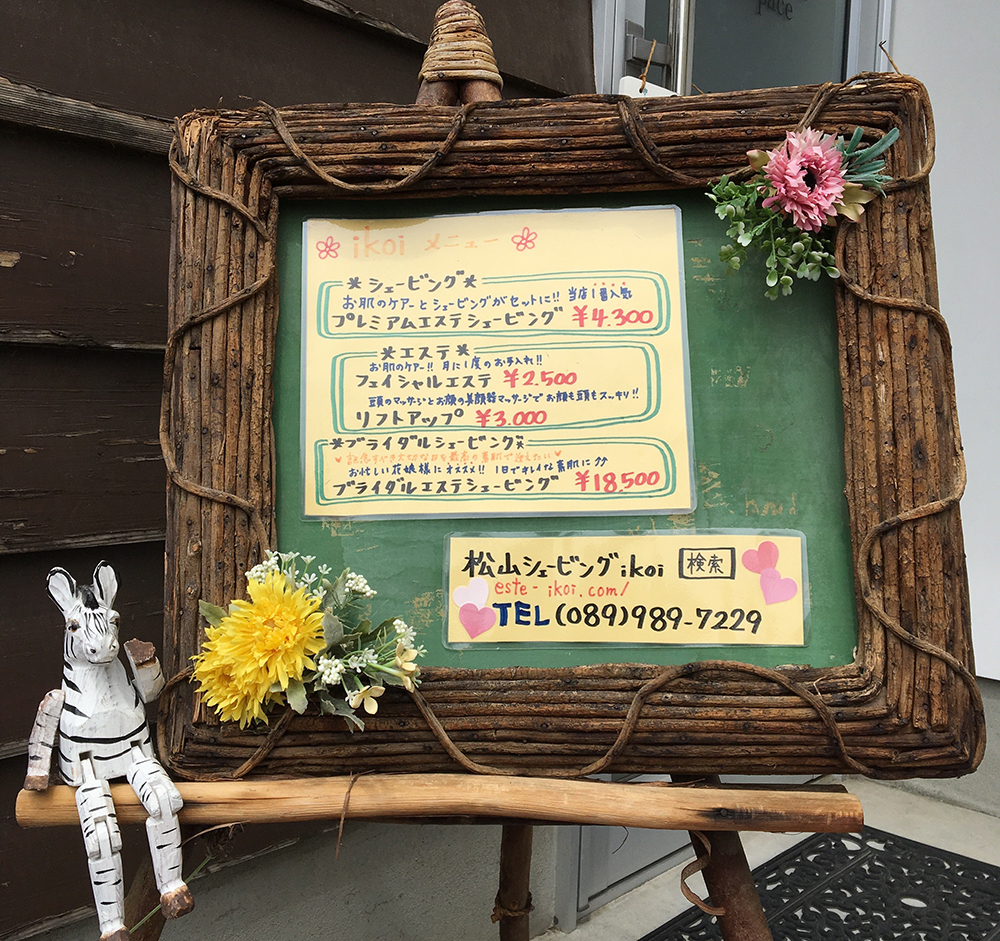 pace
ikoi メニュー
*シェービング*
お肌のケアーとシェービングがセットに!! 当店1番人気
プレミアムエステシェービング ¥4.300
*エステ*
お肌のケアー!! 月に1度のお手入れ!!
フェイシャルエステ ¥2.500
頭のマッサージとお顔の美顔器マッサージで お顔も頭もスッキリ!!
リフトアップ ¥3.000
*ブライダルシェービング*
記念すべき大切な日を最高の素肌で迎えたい
お忙しい花嫁様にオススメ!! 1日でキレイな素肌に
ブライダルエステシェービング ¥18.500
松山シェービングikoi 検索
este-ikoi.com/
TEL(089)989-7229